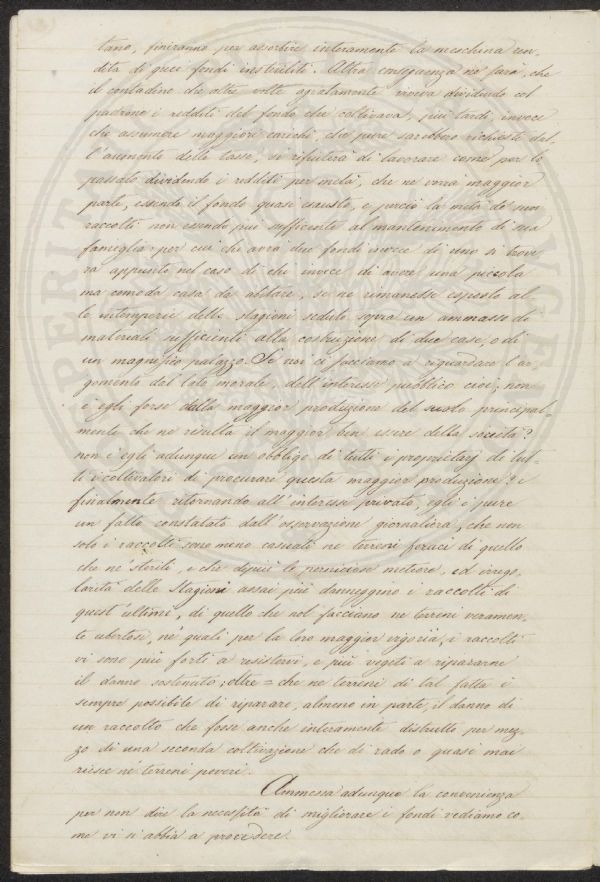 tano, finiranno per assorbire interamente la meschina ren-
dita di quei fondi insteriliti. Altra conseguenza ne sarà, che
il contadino che altre volte agiatamente viveva dividendo col
padrone i redditi del fondo che coltivava, più tardi, invece
che assumere maggiori carichi, che pure sarebbero richiesti dal-
l'aumento delle tasse, si rifiuterà di lavorare come per lo
passato dividendo i redditi per metà, che ne vorrà maggior
parte, essendo il fondo quasi esausto, e perciò la metà de' suoi
raccolti non essendo più sufficiente al mantenimento di sua
famiglia per cui chi avrà due fondi invece di uno si trove-
rà appunto nel caso di chi invece di avere una piccola
ma comoda casa da abitare, se ne rimanesse esposto al-
le intemperie delle stagioni seduto sopra un ammasso di
materiali sufficienti alla costruzione di due case, o di
un magnifico palazzo. Se noi ci facciamo a riguardare l'ar-
gomento dal lato morale, dell'interesse pubblico cioè; non
è egli forse dalla maggior produzione del suolo principal-
mente che ne risulta il maggior ben essere della società?
non è egli adunque un obbligo di tutti i proprietarj di tut-
ti i coltivatori di procurare questa maggior produzione? e
finalmente ritornando all'interesse privato, egli è pure
un fatto constatato dall'osservazione giornaliera, che non
solo i raccolti sono meno casuali ne terreni feraci di quello
che ne' sterili, e che dippiù le perniciose meteore, ed irrego-
larità delle Stagioni assai più danneggino i raccolti di
quest'ultimi, di quello che nol facciano ne terreni veramen-
te ubertosi, ne quali per la loro maggior vigoria, i raccolti
vi sono più forti a resistervi, e più vegeti a ripararne
il danno sostenuto; oltre = che ne terreni di tal fatta è
sempre possibile di riparare, almeno in parte, il danno di
un raccolto che fosse anche interamente distrutto per mez-
zo di una seconda coltivazione che di rado o quasi mai
riesce ne terreni poveri.
Ammessa adunque la convenienza
per non dire la necessità di migliorare i fondi vediamo co-
me vi si abbia a procedere.